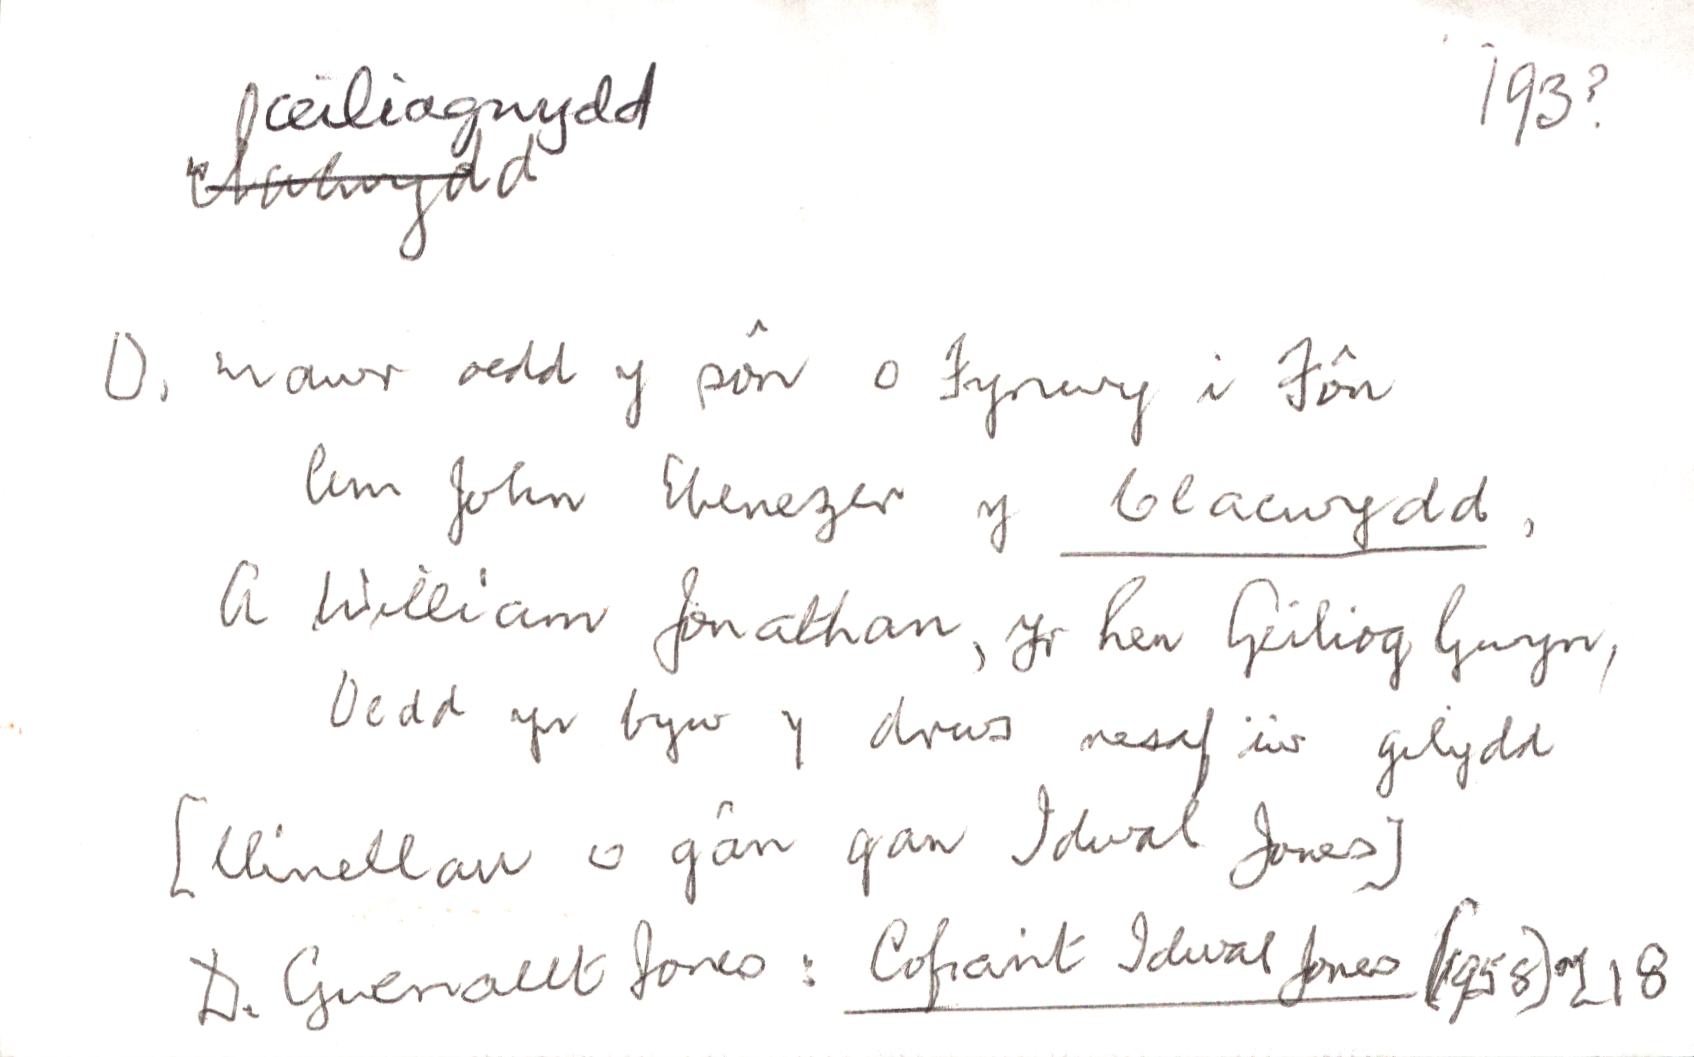 ceiliagwydd 193?
clacwydd
O, mawr oedd y sôn o Fynwy i Fôn
Am John Ebenezer y Clacwydd,
A William Jonathan, yr hen Geiliog Gwyn,
Oedd yn byw y drws nesaf i'w gilydd
[llinellau o gân gan Idwal Jones]
D. Gwenallt Jones : Cofiant Idwal Jones (1958) 218